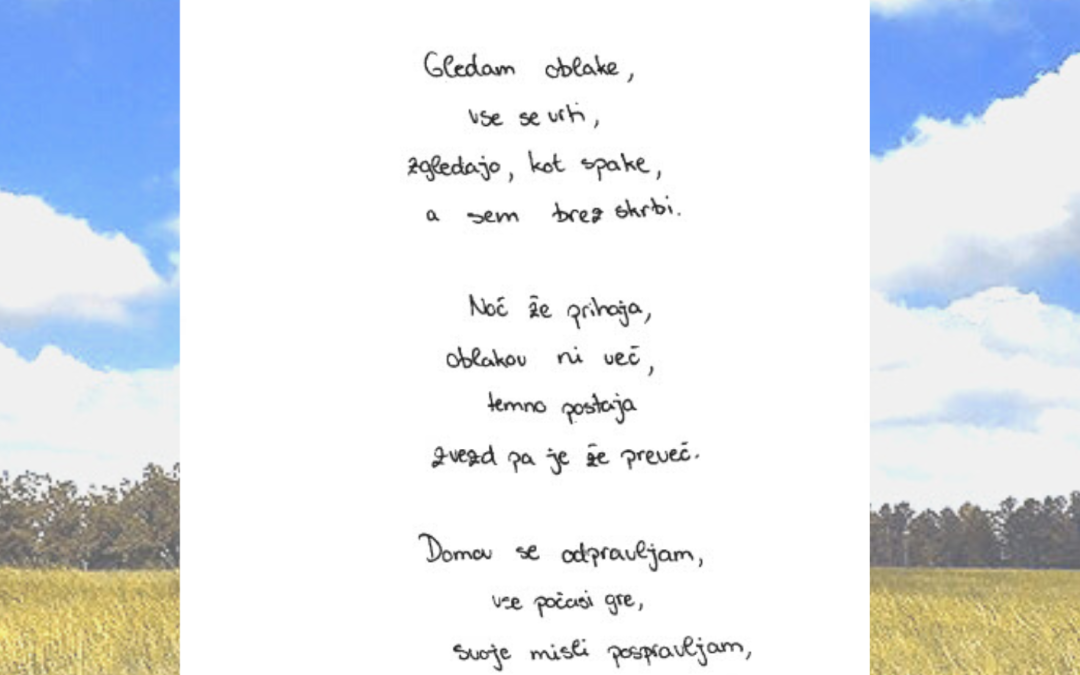 Gledam oblake,
vse se vrti,
zgledajo, kot spake,
a sem brez skrbi.
Noč že prihaja,
oblakov ni več,
temno postaja
zvezd pa je že preveč.
Domov se odpravljam,
vse počasi gre,
svoje misli pospravljam,